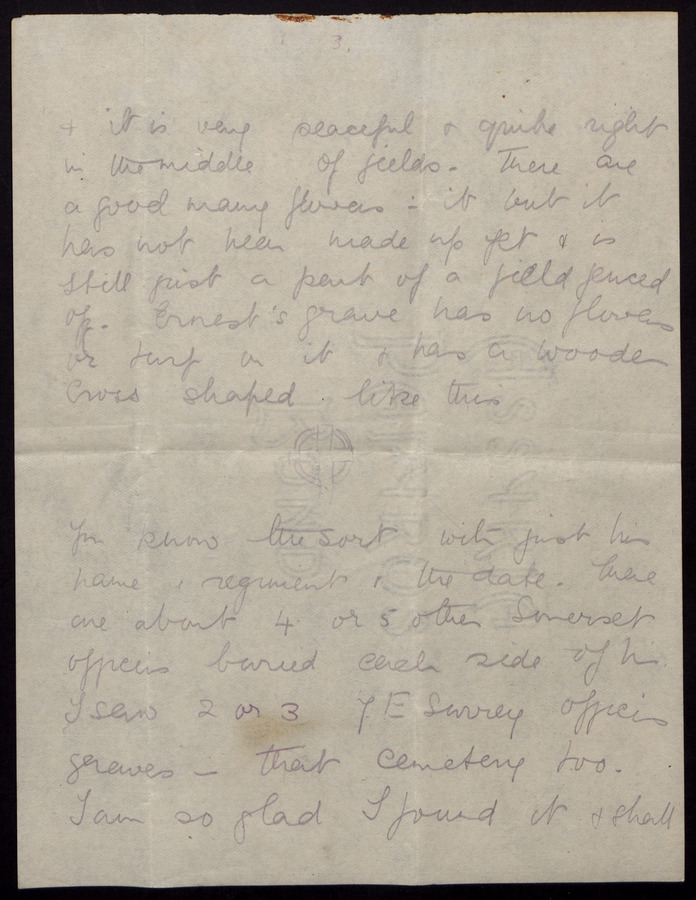 3.
& it is very peaceful & quite right
in the middle of fields. There are
a good many flowers in it but it
has not been made up yet & is
still just a part of a field fenced
off. Ernest's grave has no flowers
or turf on it & has a wooden
Cross shaped like this
You know the sort with just his
name, regiment & the date. There
are about 4 or 5 other Somerset
officers buried each side of him.
I saw 2 or 3 7 E Surrey officers
graves in that cemetery too.
I am so glad I found it & shall